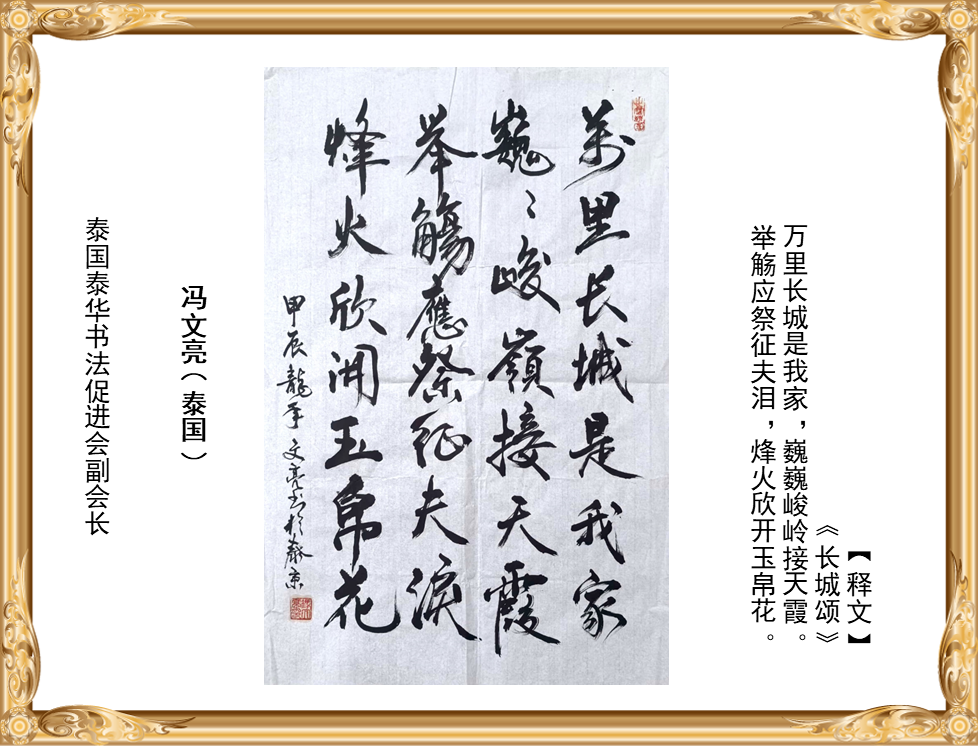 【释文】
《长城颂》
万里长城是我家，巍巍峻岭接天霞。
举觞应祭征夫泪，烽火欣开玉帛花。
萬里长城是我家
巍〻峻嶺接天霞
举觴應祭征夫淚
烽火欣開玉帛花
甲辰龍年文亮书於泰京
冯文亮（泰国）
泰国泰华书法促进会副会长